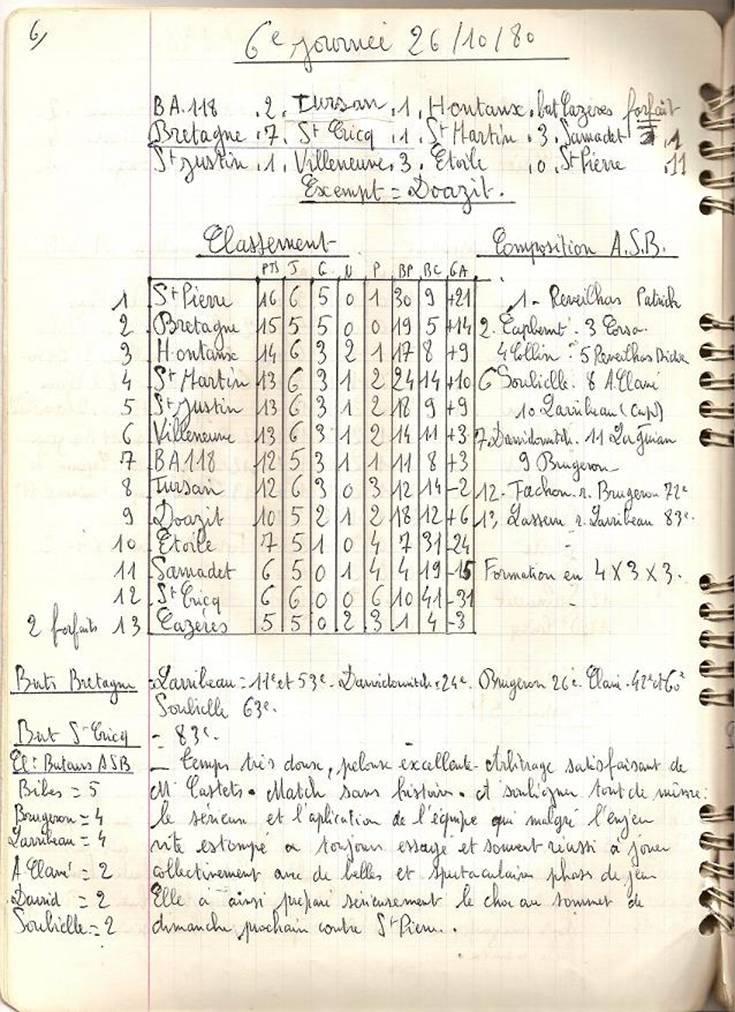 6,
6e journée 26/10/80
BA.118 . 2 . Tursan . 1 . Hontanx . bat Cazères forfait
Bretagne . 7 . St Cricq . 1 . St Martin . 3 . Samadet 1
St Justin . 1 . Villeneuve . 3 . Etoile . 0 . St Pierre . 11
Exempt = Doazit .
Classement
Composition A.S.B.
PTS J G N P BP BC GA
1 St Pierre 16 6 5 0 1 30 9 +21
2 Bretagne 15 5 5 0 0 19 5 +14
3 Hontanx 14 6 3 2 1 17 8 +9
4 St Martin 13 6 3 1 2 24 14 +10
5 St Justin 13 6 3 1 2 18 9 +9
6 Villeneuve 13 6 3 1 2 14 11 +3
7 BA 118 12 5 3 1 1 11 8 +3
8 Tursan 12 6 3 0 3 12 14 -2
9 Doazit 10 5 2 1 2 18 12 +6
10 Etoile 7 5 1 0 4 7 31 -24
11 Samadet 6 5 0 1 4 4 19 -15
12 St Cricq 6 6 0 0 6 10 41 -31
2 forfaits 13 Cazères 5 5 0 2 3 1 4 -3
1 - Reveilhas Patrick
2. 3
4 Collin . 5 Reveilhas
6 Soubielle . 8 A. Clavé
10 Larribeau (Cap)
7. Davidowitch . 11
9 Brugeron -
12 - Fachon r. Brugeron 72e
13, Lassem r. Larribeau 83e.
Formation en 4 X 3 X 3 .
Buts Bretagne = Larribeau = 11e et 53e - Davidowitch . 24e . Brugeron 26e . Clavé . 42e et 60e
Soubielle 63e .
But St Cricq = 83e .
Cl: Buteurs ASB
Bibes = 5
Brugeron = 4
Larribeau = 4
A Clavé = 2
David = 2
Soubielle = 2
- Temps très doux, pelouse excellente - Arbitrage satisfaisant de
Mr Castets . Match sans histoire . A souligner tout de même :
le sérieux et l'aplication de l'équipe qui malgré l'enjeu
vite estompé a toujours essayé et souvent réussi à jouer
collectivement avec de belles et spectaculaires phases de jeu
Elle a ainsi préparé sérieusement le choc au sommet de
dimanche prochain contre St Pierre .